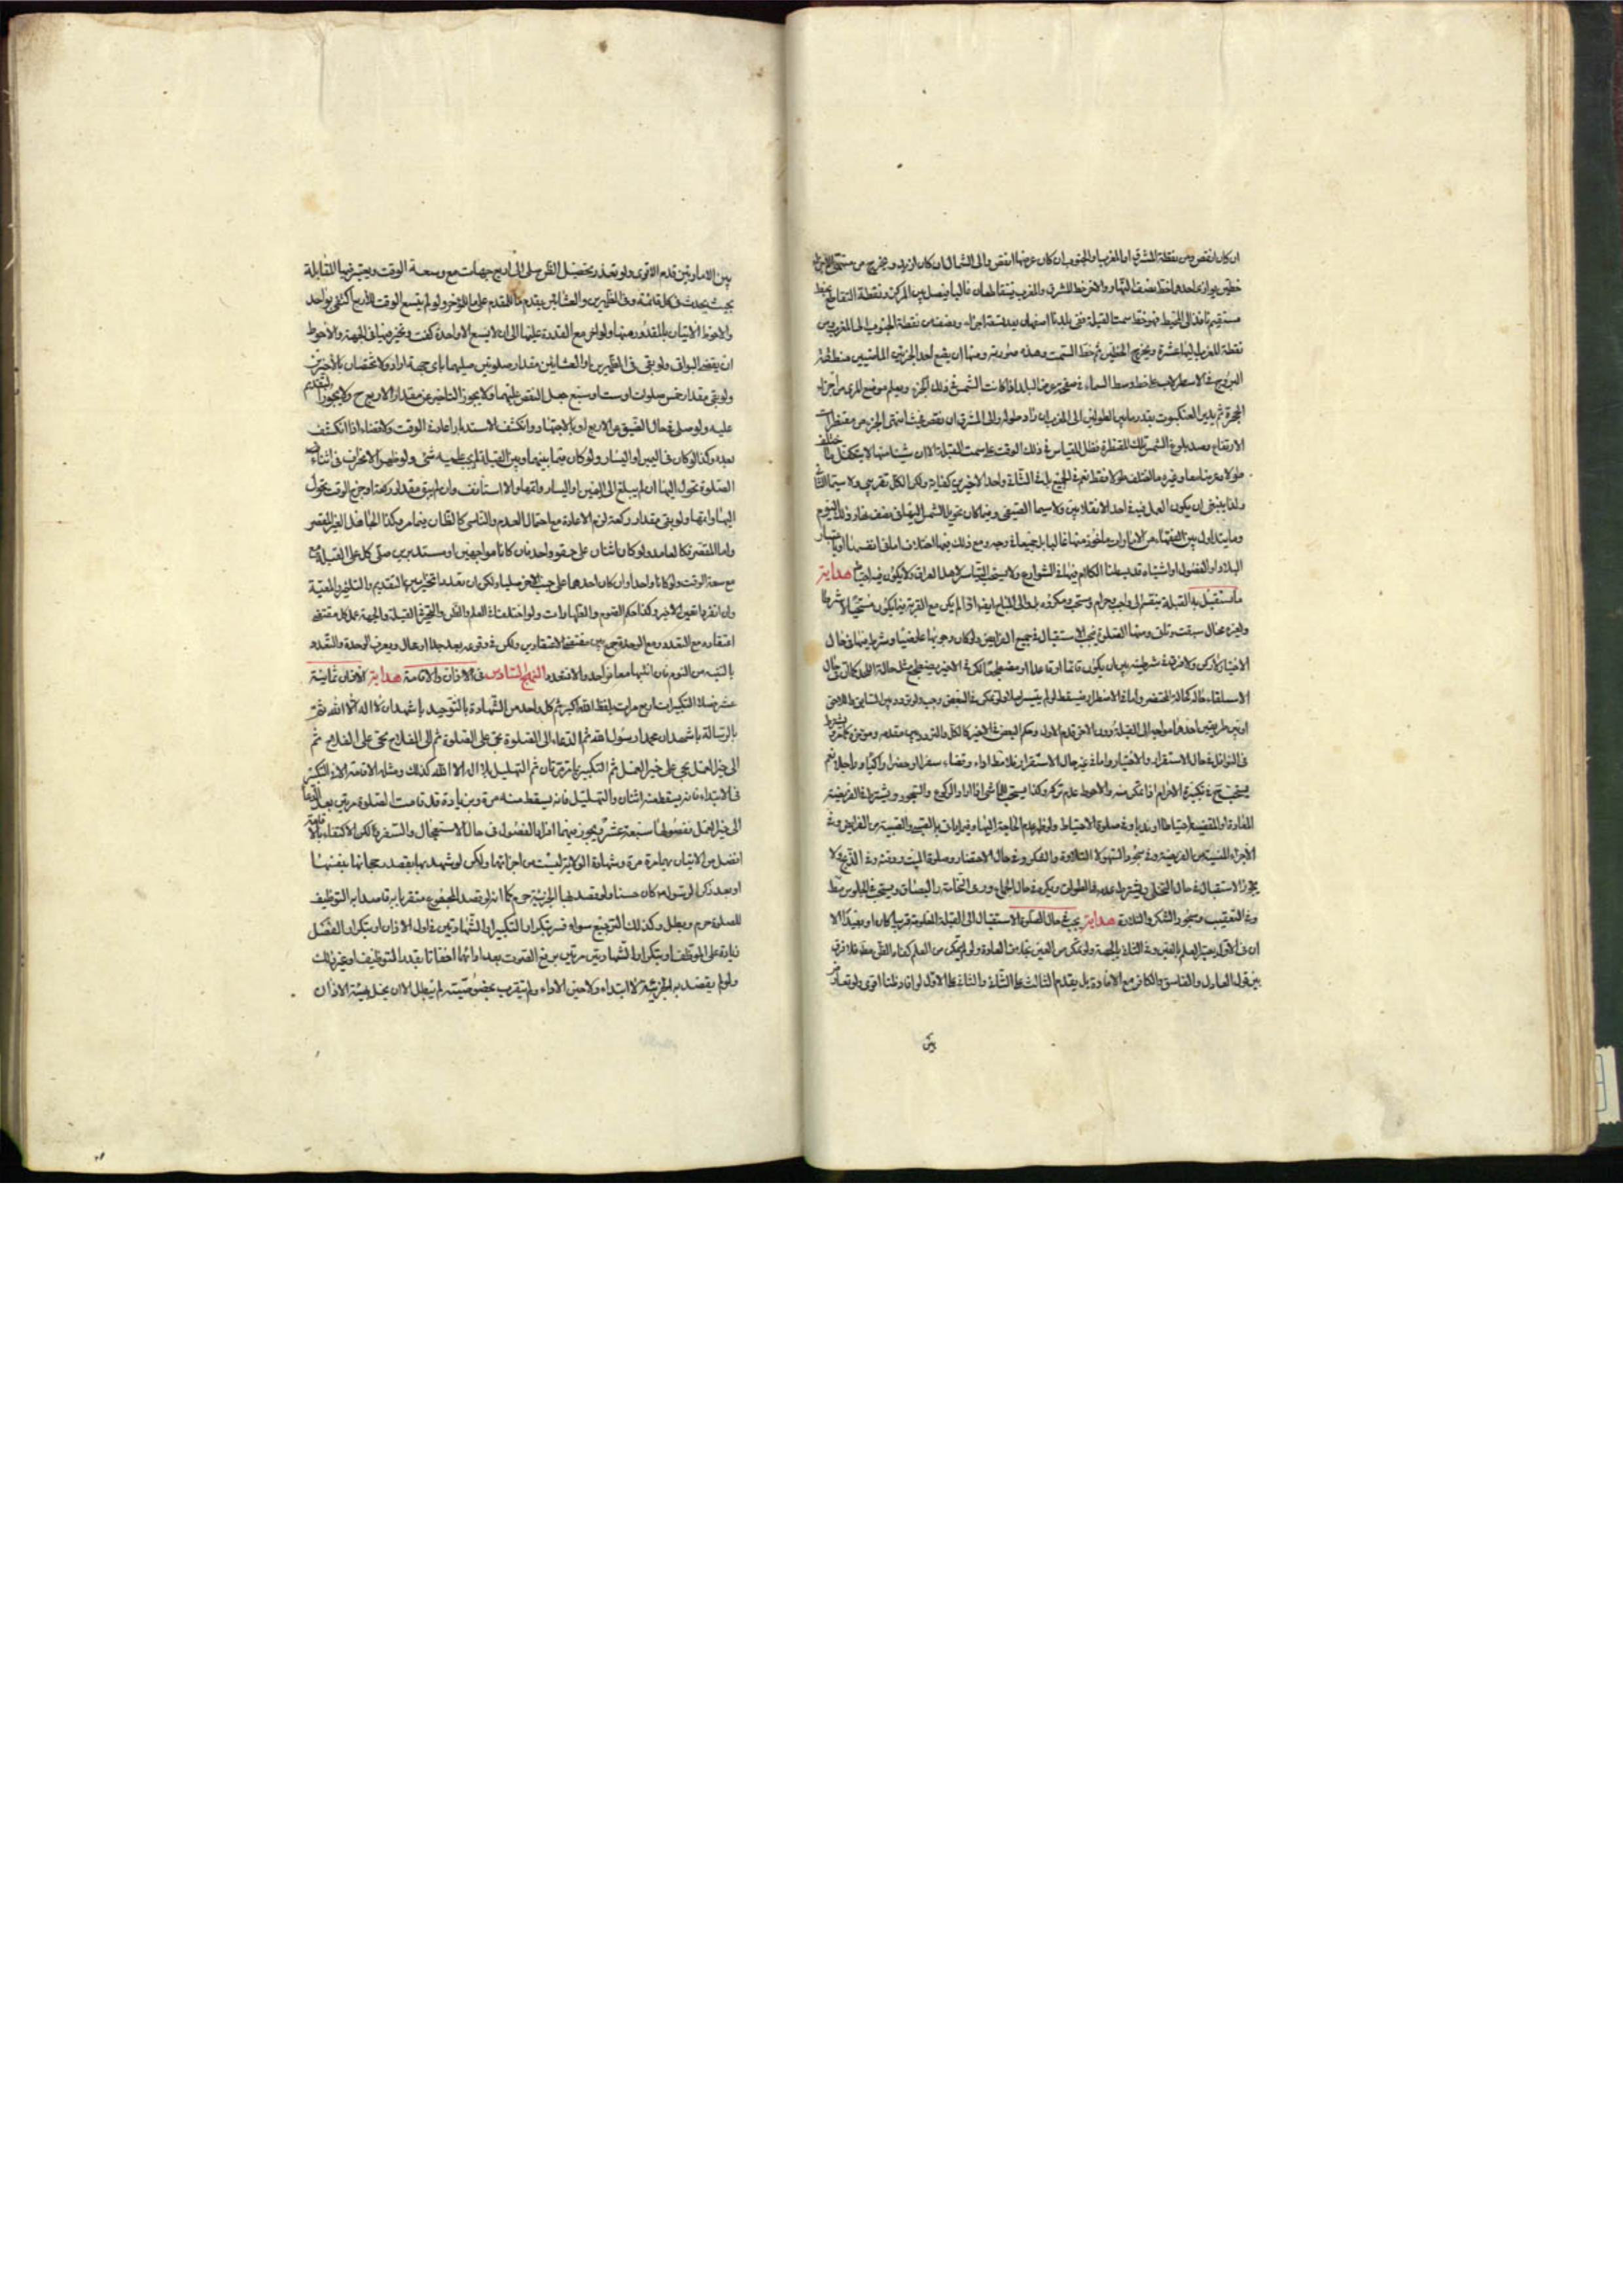 ان كان انقص ومن نقطة المشرق او المغرب او الجنوب ان كان عرضها انقص والى الشمال ان كان ازيد ويخرج من
خطين يوازى احدهما خط نصف النهار والاخر خط المشرق والمغرب يتقاطعان غالبا ويصل بين المركز ونقطة التقاطع بخط
مستقيم نافذ الى المحيط فهو خط سمت القبلة ففى بلدنا اصفهان بعد تسعة اجزاء ونصف من نقطة الجنوب الى المغرب ومن
نقطة المغرب اليها عشرة ويخرج الخطين ثم خط السمت وهذه صورته ومنها ان يقع احد الجزئين منطقة
البروج فى الاسطرلاب على خط وسط السماء فى صفيحة عرض البلد اذا كانت الشمس فى ذلك الجزء ويعلم موضع المرى من اجزاء
الحجرة ثم يدير العنكبوت بقدر ما بين الطولين الى المغرب ان زاد طوله والى المشرق ان نقص فحيث انتهى الجزء من مقنطرات
الارتفاع رصد بلوغ الشمس تلك المقنطرة فظل المقياس فى ذلك الوقت على سمت القبلة الا ان شيئا منها لا يتكفل ما خالف
طولا وعرضا معا وغيره ما اختلف طولا فقط نعم فى الجميع بل فى الثلثة واحد الاخيرين كفاية ولكن الكل تقريبى ولا سيما
ولذا ينبغى ان يكون العمل فيه فى احد الانقلابين ولا سيما الصيفى وربما كان تحويل الشمس اليها فى نصف نهار ذلك اليوم
وما يتداول بين الفقهاء من الامارات ماخوذ منها غالبا بل جميعا فى وجه ومع ذلك فيها اختلاف اما فى انفسها او باعتبار
البلاد او الفصول او اشياء قد بسطنا الكلام فيها فى الشوارع ولا يستحب التياسر لاهل العراق ولا يكون فيه احتياط هداية
ما يستقبل به القبلة ينقسم الى واجب وحرام ومستحب ومكروه بل والى المباح ايضا اذا لم يكن مع القربة فيما يكون مستحبا لا شرطا
ولغيره محال سبقت وتاتى ومنها الصلوة يجب الاستقبال فى جميع الفرايض ولو كان وجوبها عارضيا وشرط فيها فى حال
الاختيار لا ركن ولا فرق فى شرطيته بين ان يكون قائما او قاعدا او مضطجعا لكن فى الاخير يضطجع مثل حالة اللحد كما ان فى حال
الاستلقاء حاله كحالة المحتضر واما فى الاضطرار فيسقط لو لم يتيسر اصلا ولو تمكن فى البعض وجب ولو تردد بين السابق واللاحق
او بين طريقين احدهما مواجه الى القبلة دون الاخر قدم الاول وحكم البعض فى الاخير كالكل والتردد بين مقدم ومؤخر كما مر ويشترط
فى النوافل فى حال الاستقرار والاختيار واما فى غير حال الاستقرار فلا مطلقا اداء وقضاء سفرا او حضرا راكبا وراجلا نعم
يستحب فى تكبيرة الاحرام اذا تمكن منه والاحوط عدم تركه وكذا يستحب للماشى اذا اراد الركوع والسجود ويشترط فى الفريضة
المعادة والمقضية احتياطا او ندبا وفى صلوة الاحتياط ولو ظهر عدم الحاجة اليها وفيما بان بالصبى والصبية من الفرايض وفى
الاجزاء المنسية من الفريضة وفى سجود السهو لا التلاوة والشكر وفى حال الاحتضار وصلوة الميت ودفنه وفى الذبح ولا
يجوز الاستقبال فى حال التخلى ويشترط عدمه فى الطواف ويكره فى حال الجماع ورمى النخامة والبصاق ويستحب فى الجلوس مط
وفى التعقيب وسجود الشكر والتلاوة هداية يجب فى حال الصلوة الاستقبال الى القبلة المعلومة قريبا كان او بعيدا الا
ان فى الاول يعتبر العلم بالعين وفى الثانى بالجهة ولو تمكن من العين بغير مناف العادة ولو لم يتمكن من العلم كفاه الظن مط فلا فرق
بين قول العادل والفاسق والكافر مع الافادة بل يقدم الثالث على الثانى والثانى على الاول لو افاد ظنا اقوى ولو تعارض
بين
بين الامارتين قدم الاقوى ولو تعذر تحصيل الظن صلى الى اربع جهات مع وسعة الوقت ويعتبر فيها المقابلة
بحيث يحدث فى كل قائمة وفى الظهرين والعشائين يقدم ما للمقدم على ما للمؤخر ولو لم يسع الوقت للاربع اكتفى بواحد
والاحوط الاتيان بالمقدور منها ولو اخر مع القدرة عليها الى ان لا يسع الا واحدة كفت ويخير فيها فى الجهة والاحوط
ان يقضى البواقى ولو بقى فى الظهرين او العشائين مقدار صلوتين صليهما باى جهة اراد ولا تختصان بالاخيرتين
ولو بقى مقدار خمس صلوات او ست او سبع جعل النقص عليهما ولا يجوز التاخير عن مقدار الاربع ح ولا يجوز التقديم
عليه ولو صلى فى حال الضيق من الاربع او بالاجتهاد وانكشف الاستدبار اعاد فى الوقت ولا قضاء اذا انكشف
بعده وكذا لو كان فى اليمين او اليسار ولو كان فيما بينهما وبين القبلة لم يجب عليه شئ ولو ظهر الانحراف فى اثناء
الصلوة تحول اليها ان لم يبلغ الى اليمين او اليسار واتمها والا استانف وان لم يبق مقدار ركعة او خرج الوقت تحول
اليها واتمها ولو بقى مقدار ركعة لزم الاعادة مع احتمال العدم والناسى كالظان فيما مر وكذا الجاهل الغير المقصر
واما المقصر فكالعامد ولو كان اثنان على حقو واحد فان كانا مواجهين او مستدبرين صلى كل على القبلة
مع سعة الوقت ولو كانا واحدا وان كان احدهما على جنب الاخر صليا ولكن ان تعدد تخير بين التقديم والتاخير والمعية
وان انفرد تعين الاخير وكذا حكم الصوم والطهارات ولو اختلفا فى العلم والظن والتحير فى القبلة والجهة عمل كل مقتضى
اعتقاده مع التعدد ومع الوحدة يجمع بين مقتضى الاعتقادين ولكن فى وقوعه بعد جدا او محال ويعرف الوحدة والتعدد
بالتنبه من النوم فان انتبها معا فواحد والا فتعدد النهج السادس فى الاذان والاقامة هداية الاذان ثمانية
عشر فصلا التكبيرات اربع مرات بلفظ الله اكبر ثم كل واحد من الشهادة بالتوحيد باشهد ان لا اله الا الله ثم
بالرسالة باشهد ان محمدا رسول الله ثم الدعاء الى الصلوة بحى على الصلوة ثم الى الفلاح بحى على الفلاح ثم
الى خير العمل بحى على خير العمل ثم التكبير بما مر مرتان ثم التهليل بلا اله الا الله كذلك ومثله الاقامة الا فى التكبير
فى الابتداء فانه يسقط منه اثنان والتهليل فانه يسقط منه مرة وبزيادة قد قامت الصلوة مرتين بعد الدعاء
الى خير العمل ففصولها سبعة عشر ويجوز فيهما افراد الفصول فى حال الاستعجال والسفر ولكن الاكتفاء بالاقامة
افضل من الاتيان بهما مرة مرة وشهادة الولاية ليست من اجزائهما ولكن لو شهد بها بقصد رجحانها بنفسها
او بعد ذكر الرسول ص كان حسنا ولو قصد بها الجزئية حرم كما انه لو قصد المجموع متقربا به قاصدا به التوظيف
للصلوة حرم وبطل وكذلك الترجيع سواء فسر بتكرار التكبير او الشهادتين فى اول الاذان او بتكرار الفصل
زيادة على الموظف او بتكرار الشهادتين مرتين برفع الصوت بعد ادائهما اخفاتا بقصد التوظيف او غير ذلك
ولو لم يقصد به الجزئية لا ابتداء ولا حين الاداء ولم يتقرب بخصوصيته لم يبطل الا ان يخل بهيئة الاذان